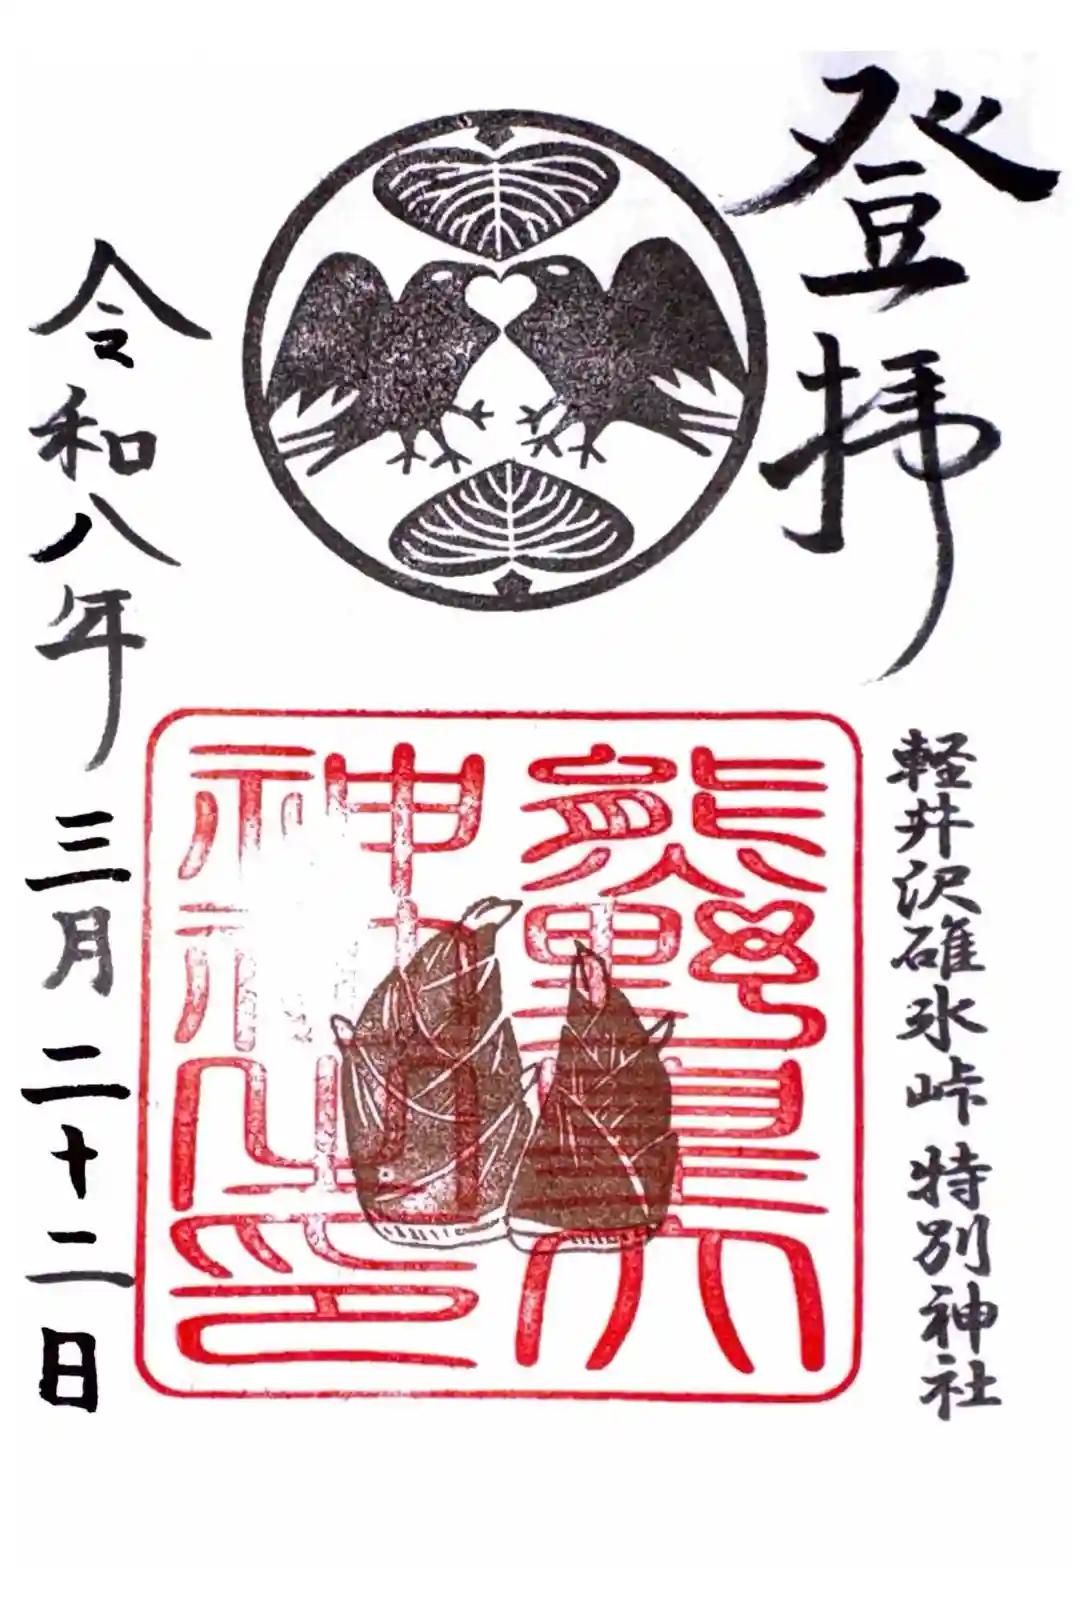 登拝
軽井沢碓氷峠特別神社
熊野皇大
神社之印
令和八年三月二十二日